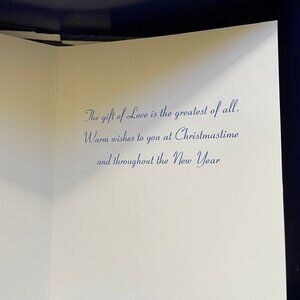 The gift of Love is the greatest of all.
Warm wishes to you at Christmastime
and throughout the New Year